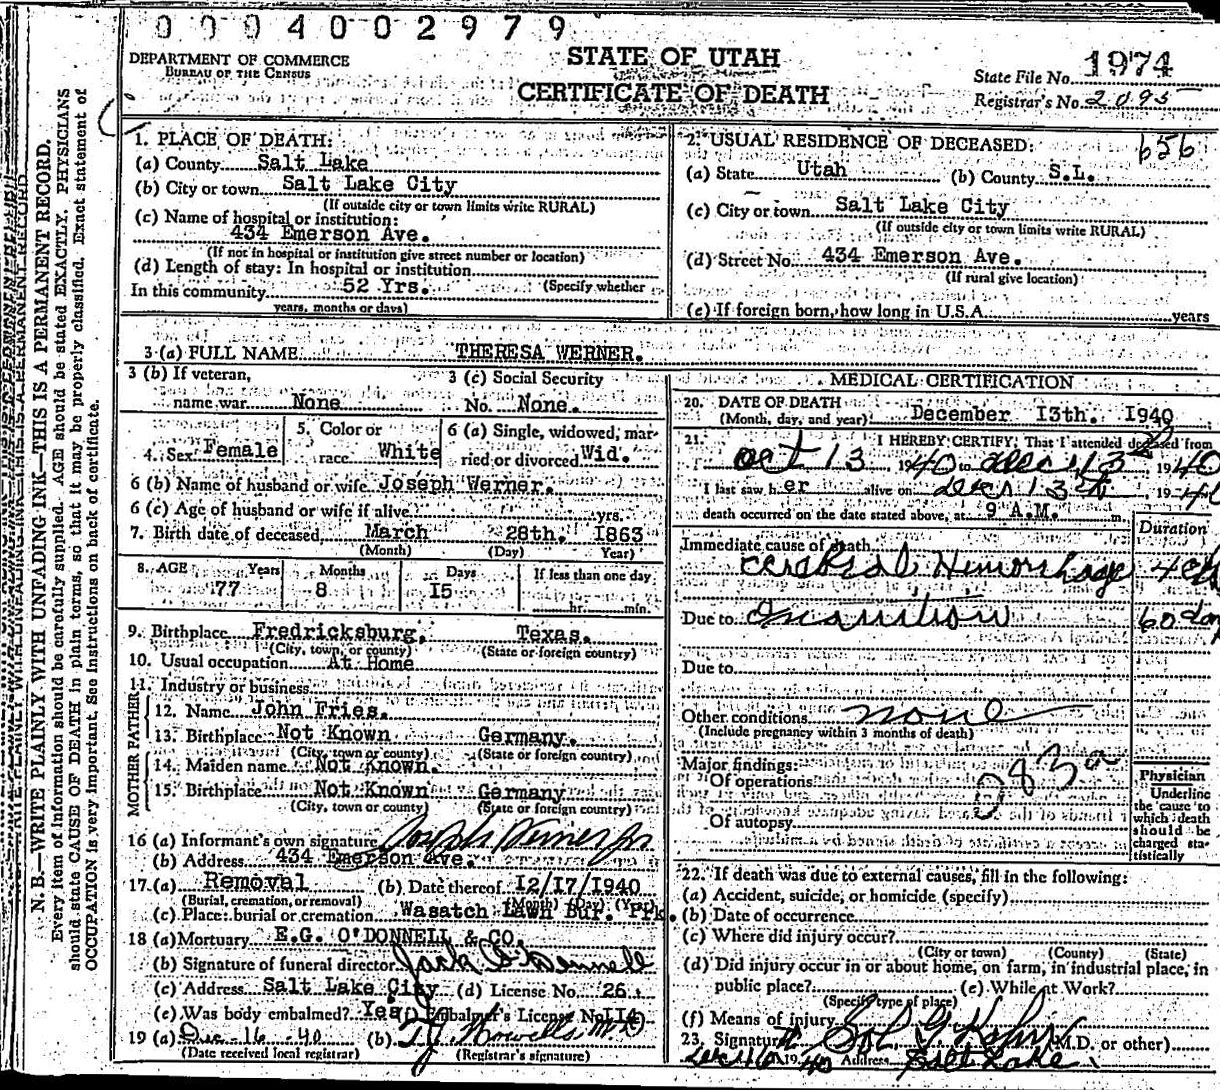 0004002979
DEPARTMENT OF COMMERCE
BUREAU OF THE CENSUS
STATE OF UTAH
CERTIFICATE OF DEATH
State File No. 1974
Registrar's No. 2095
656
N. B.—WRITE PLAINLY WITH UNFADING INK—THIS IS A PERMANENT RECORD.
Every item of information should be carefully supplied. AGE should be stated EXACTLY. PHYSICIANS
should state CAUSE OF DEATH in plain terms, so that it may be properly classified. Exact statement of
OCCUPATION is very important. See instructions on back of certificate.
1. PLACE OF DEATH:
(a) County Salt Lake
(b) City or town Salt Lake City
(If outside city or town limits write RURAL)
(c) Name of hospital or institution:
434 Emerson Ave.
(If not in hospital or institution give street number or location)
(d) Length of stay: In hospital or institution
In this community 52 Yrs. (Specify whether
years, months or days)
2. USUAL RESIDENCE OF DECEASED:
(a) State Utah (b) County S.L.
(c) City or town Salt Lake City
(If outside city or town limits write RURAL)
(d) Street No. 434 Emerson Ave.
(If rural give location)
(e) If foreign born, how long in U.S.A. years
3 (a) FULL NAME THERESA WERNER.
3 (b) If veteran, 3 (c) Social Security
name war None No. None.
4. Sex Female 5. Color or race White 6 (a) Single, widowed, married or divorced Wid.
6 (b) Name of husband or wife Joseph Werner.
6 (c) Age of husband or wife if alive yrs.
7. Birth date of deceased, March 28th. 1863
(Month) (Day) Year)
8. AGE Years Months Days If less than one day
77 8 15 hr. min.
9. Birthplace Fredricksburg, Texas.
(City, town, or county) (State or foreign country)
10. Usual occupation At Home
11. Industry or business
FATHER
12. Name John Fries.
13. Birthplace Not Known Germany.
(City, town or county) (State or foreign country)
MOTHER
14. Maiden name Not Known.
15. Birthplace Not Known Germany
(City, town or county) (State or foreign country)
16 (a) Informant's own signature Joseph Werner Jr
(b) Address 434 Emerson Ave.
17. (a) Removal (b) Date thereof 12/17/1940
(Burial, cremation, or removal) (Month) (Day) (Year)
(c) Place: burial or cremation Wasatch Lawn Bur. Prk.
18 (a) Mortuary E.G. O'DONNELL & CO.
(b) Signature of funeral director Jack O'Donnell
(c) Address Salt Lake City (d) License No. 26.
(e) Was body embalmed? Yes (f) Embalmer's License No. 114
19 (a) Dec-16-40 (b) T.J. Howells M.D
(Date received local registrar) (Registrar's signature)
MEDICAL CERTIFICATION
20. DATE OF DEATH
(Month, day, and year) December 13th. 1940
21. I HEREBY CERTIFY, That I attended deceased from
Oct 13, 1940 to Dec 13, 1940
I last saw her alive on Dec 13th, 1940
death occurred on the date stated above, at 9 A.M. m.
Duration
Immediate cause of death
Cerebral Hemorrhage
Due to Inanition 60 days
Due to
Other conditions none
(Include pregnancy within 3 months of death)
Major findings:
Of operations
Of autopsy
083a
Physician
Underline
the cause to
which death
should be
charged sta-
tistically
22. If death was due to external causes, fill in the following:
(a) Accident, suicide, or homicide (specify)
(b) Date of occurrence
(c) Where did injury occur?
(City or town) (County) (State)
(d) Did injury occur in or about home, on farm, in industrial place, in
public place? (e) While at Work?
(Specify type of place)
(f) Means of injury
23. Signature Sol G Kahn (M.D. or other)
Dec 16 1940 Address Salt Lake